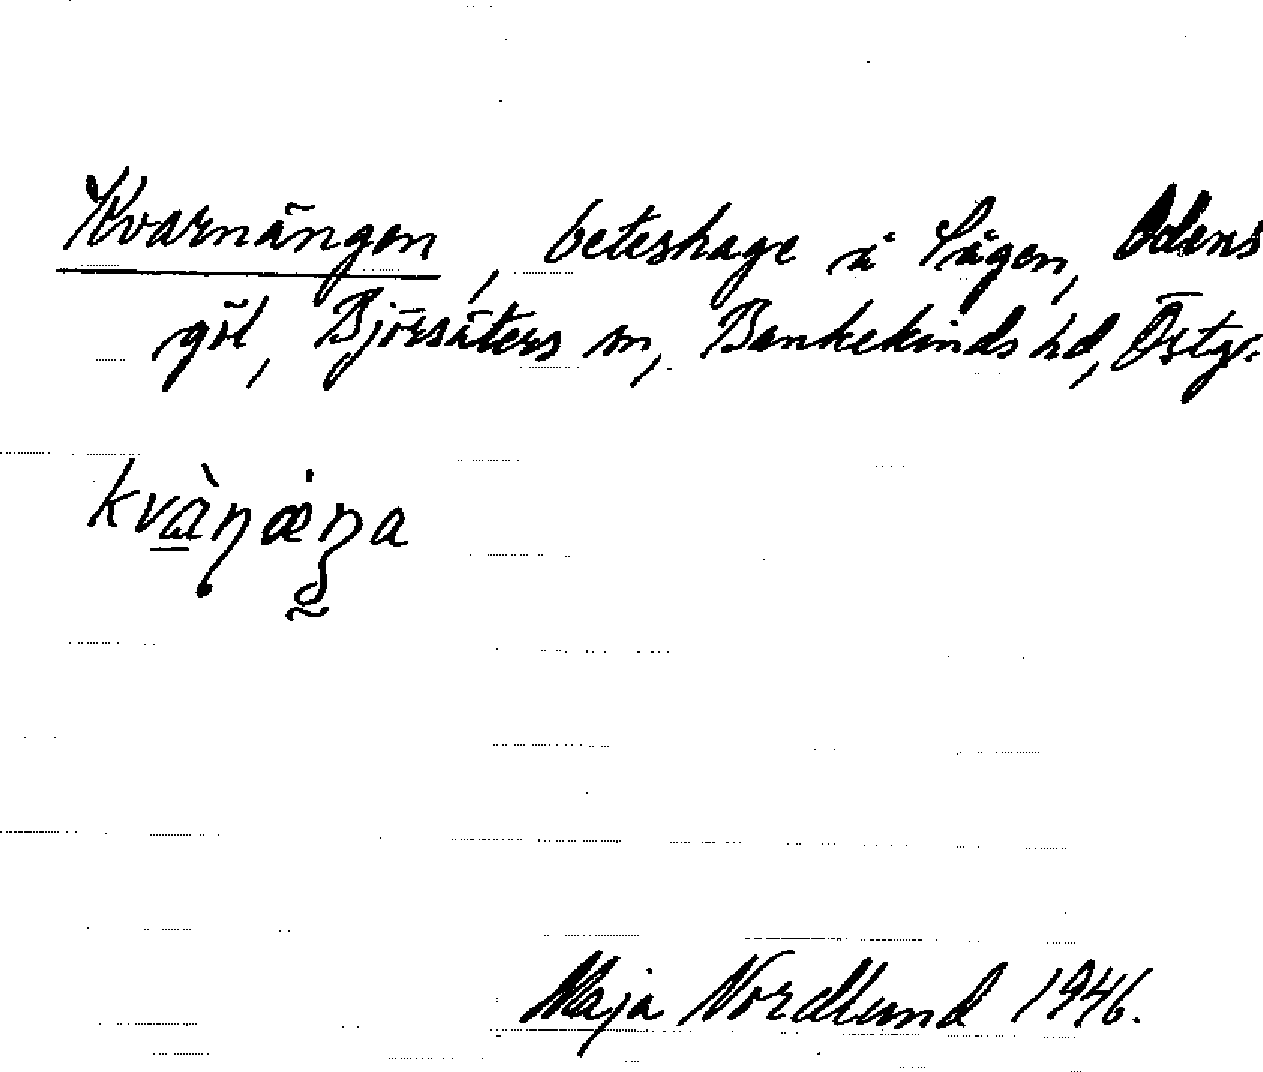 Kvarnängen, beteshage å Sågen, Odens
göl, Björsäters sn, Bankekinds hd, Östg.
kvàɳæŋa
Maja Nordlund 1946.